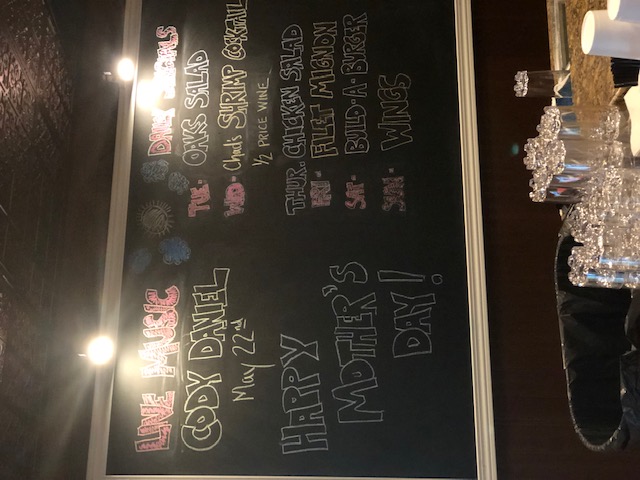 LIVE MUSIC
CODY DANIEL
May 22nd
HAPPY
MOTHER'S
DAY!
DAILY SPECIALS
TUE- OAKS SALAD
WED- Chad's SHRIMP COCKTAIL
1/2 PRICE WINE
THUR- CHICKEN SALAD
FRI- FILET MIGNON
SAT- BUILD-A-BURGER
SUN- WINGS